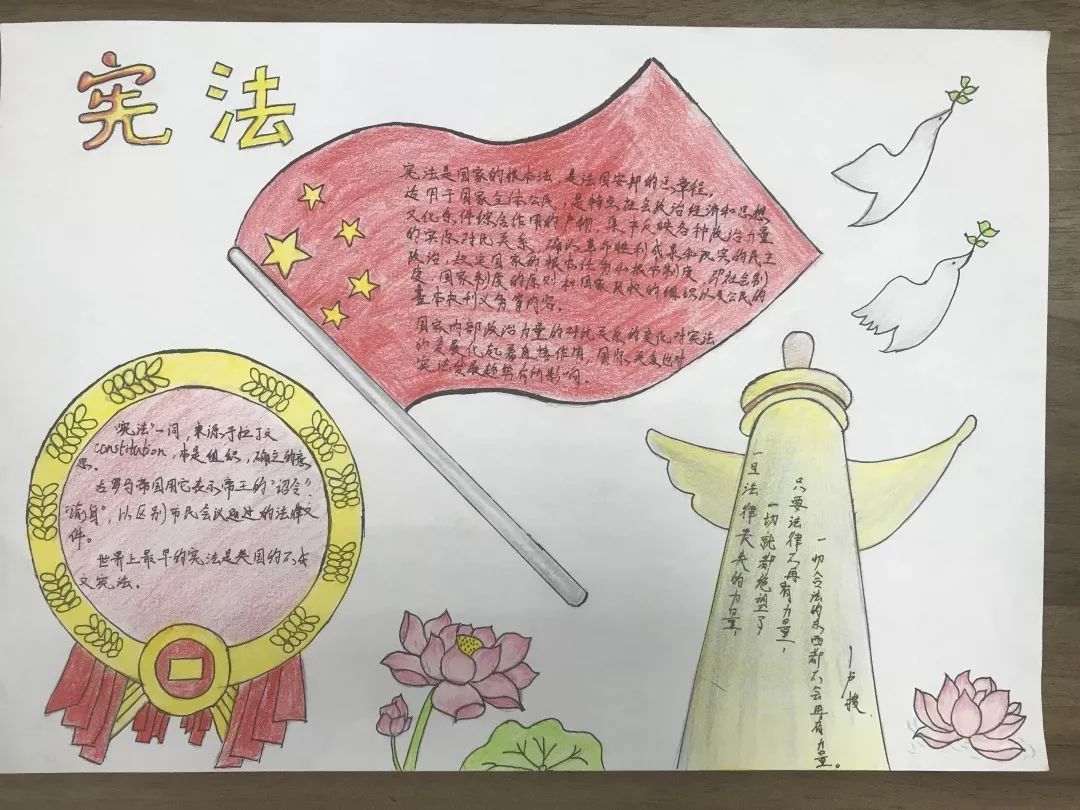 宪法
宪法是国家的根本法，是法国安邦的总章程，
适用于国家全体公民，是特定社会政治经济和思想
文化条件综合作用的产物，集中反映各种政治力量
的实际对民关系，确认革命胜利成果和现实的民主
政治，规定国家的根本任务和根本制度，即社会制
度、国家制度的原则和国家政权的组织以及公民的
基本权利义务等内容。
国家内部政治力量的对比关系的变化对宪法
的发展化起着直接作用，国际关系也对
宪法发展趋势有所影响。
"宪法"一词，来源于拉丁文
constitution，本是组织，确立的意
思。
古罗马帝国用它表示帝王的"诏令"，
"谕旨"，以区别市民会议通过的法律文
件。
世界上最早的宪法是英国的不成
文宪法。
一旦法律丧失的力量，
一切就都绝望了
只要法律不再有力量，
一切合法的东西都不会再有力量。
—卢梭